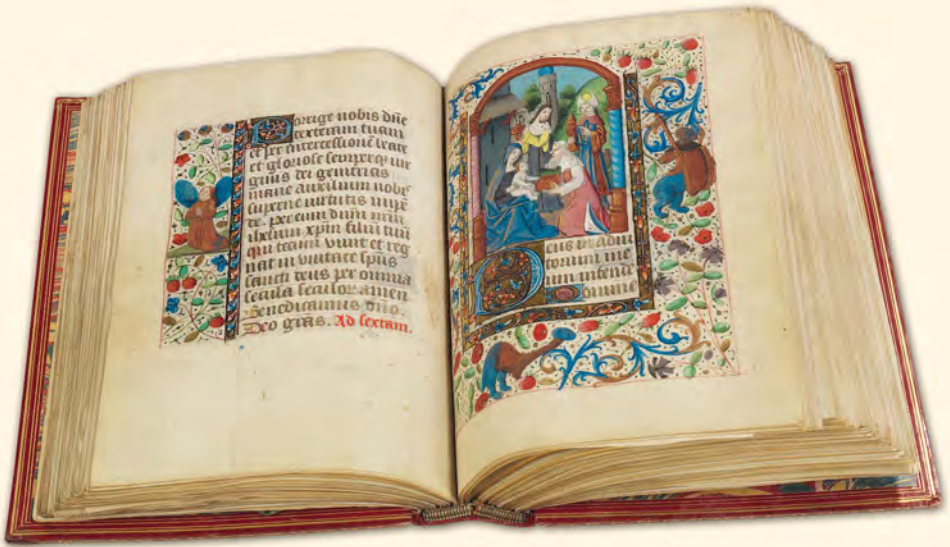 Porrige nobis dñe
dexteram tuam
et per intercessionē beate
et gloriose semperqꝫ uir
ginis dei genitricis
marie auxilium nobis
superne uirtutis impē
de. per eum dñm nrm
ihesum xp̄m filiū tuū
qui tecum viuit et reg
nat in vnitate sp̄us
sancti deus per omnia
secula seculoꝝ amen
Benedicamus dño.
Deo grās. Ad sextam.
Deus in adiu
torium me
um intende
Domine